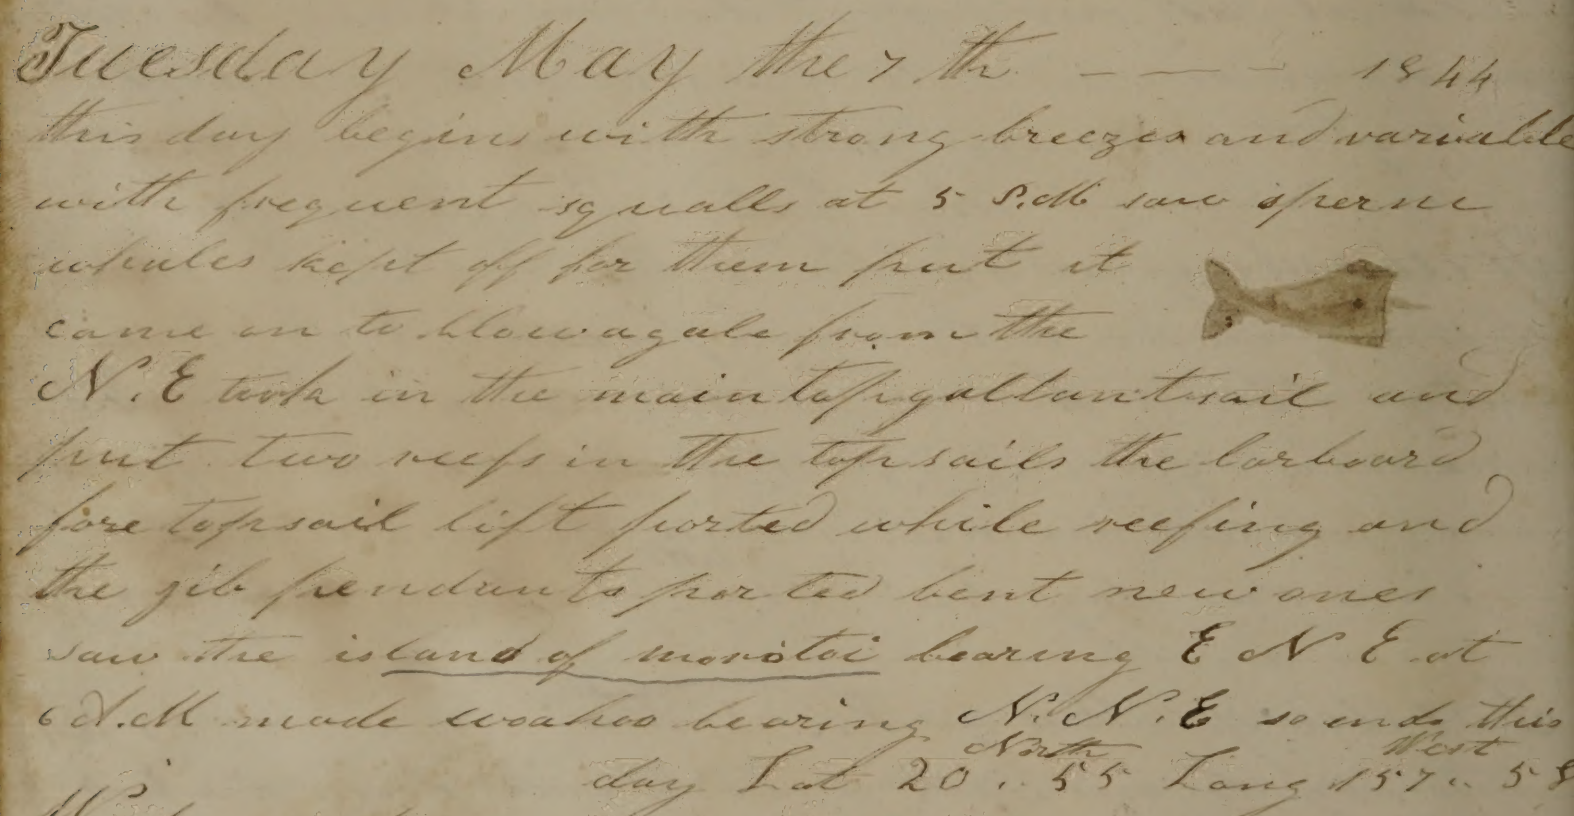 Tuesday May the 7 th - - - 1844
this day begins with strong breezes and variable
with frequent squalls at 5 P.M saw sperm
whales kept off for them put it
came on to blow a gale from the
N. E took in the main top gallant sail and
put two reefs in the topsails the larboard
fore topsail lift parted while reefing and
the jib pendants parted bent new ones
saw the island of morotoi bearing E N E at
6 A.M made woahoo bearing N. N. E so ends this
day Lat 20 .. 55 North Long 157 .. 58 West